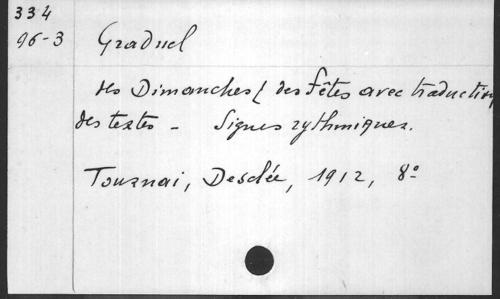 334
96-3
Graduel
des Dimanches & des Fêtes avec traduction
des textes - Signes rythmiques.
Tournai, Desclée, 1912, 8°